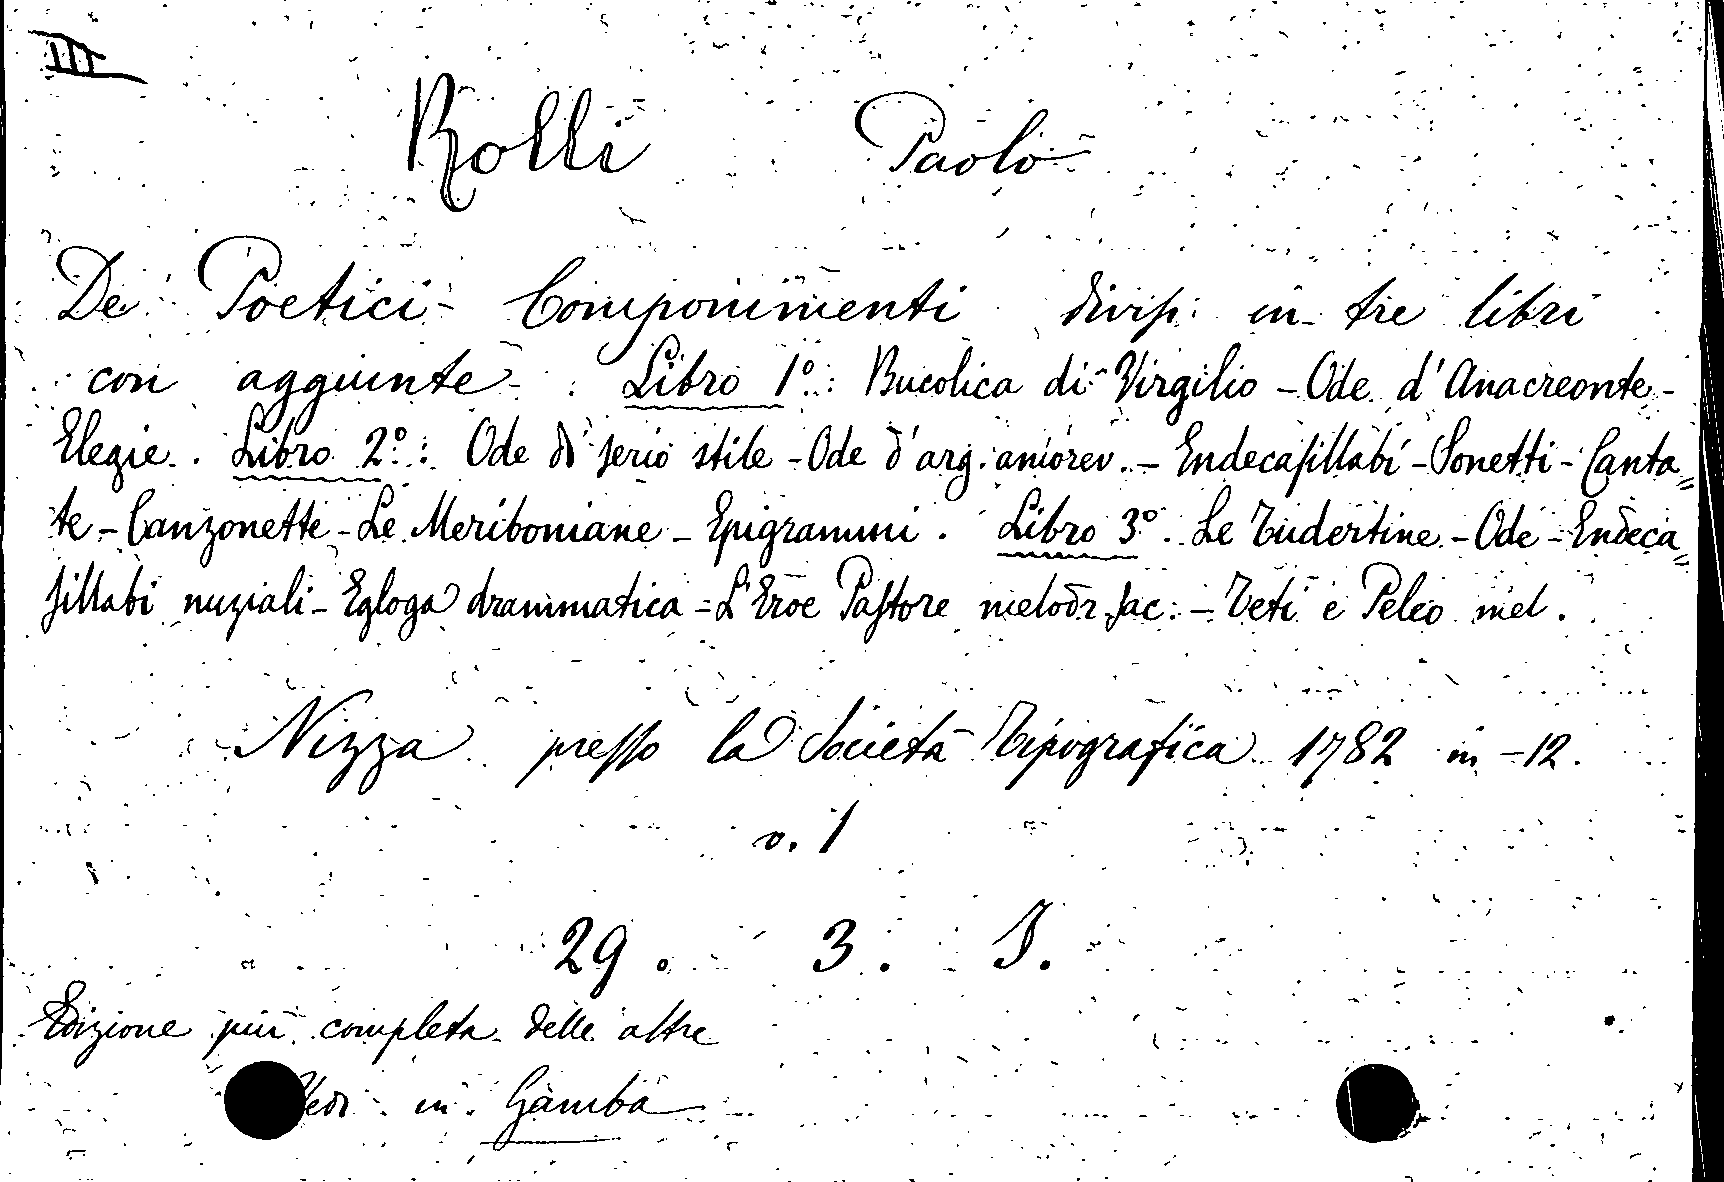 III
Rolli Paolo
De Poetici Componimenti divisi in tre libri
con aggiunte. Libro 1º: Bucolica di Virgilio - Ode d'Anacreonte -
Elegie. Libro 2º: Ode di serio stile - Ode d'arg. amorev. - Endecasillabi - Sonetti - Canta=
te - Canzonette - Le Meriboniane - Epigrammi. Libro 3º. Le Tudertine - Ode - Endeca=
sillabi nuziali - Egloga drammatica - L'Eroe Pastore melodr. sac: - Teti e Peleo mel.
Nizza presso la Società Tipografica 1782 in-12.
v. 1
29. 3. J.
Edizione più completa delle altre
Vedi in Gamba